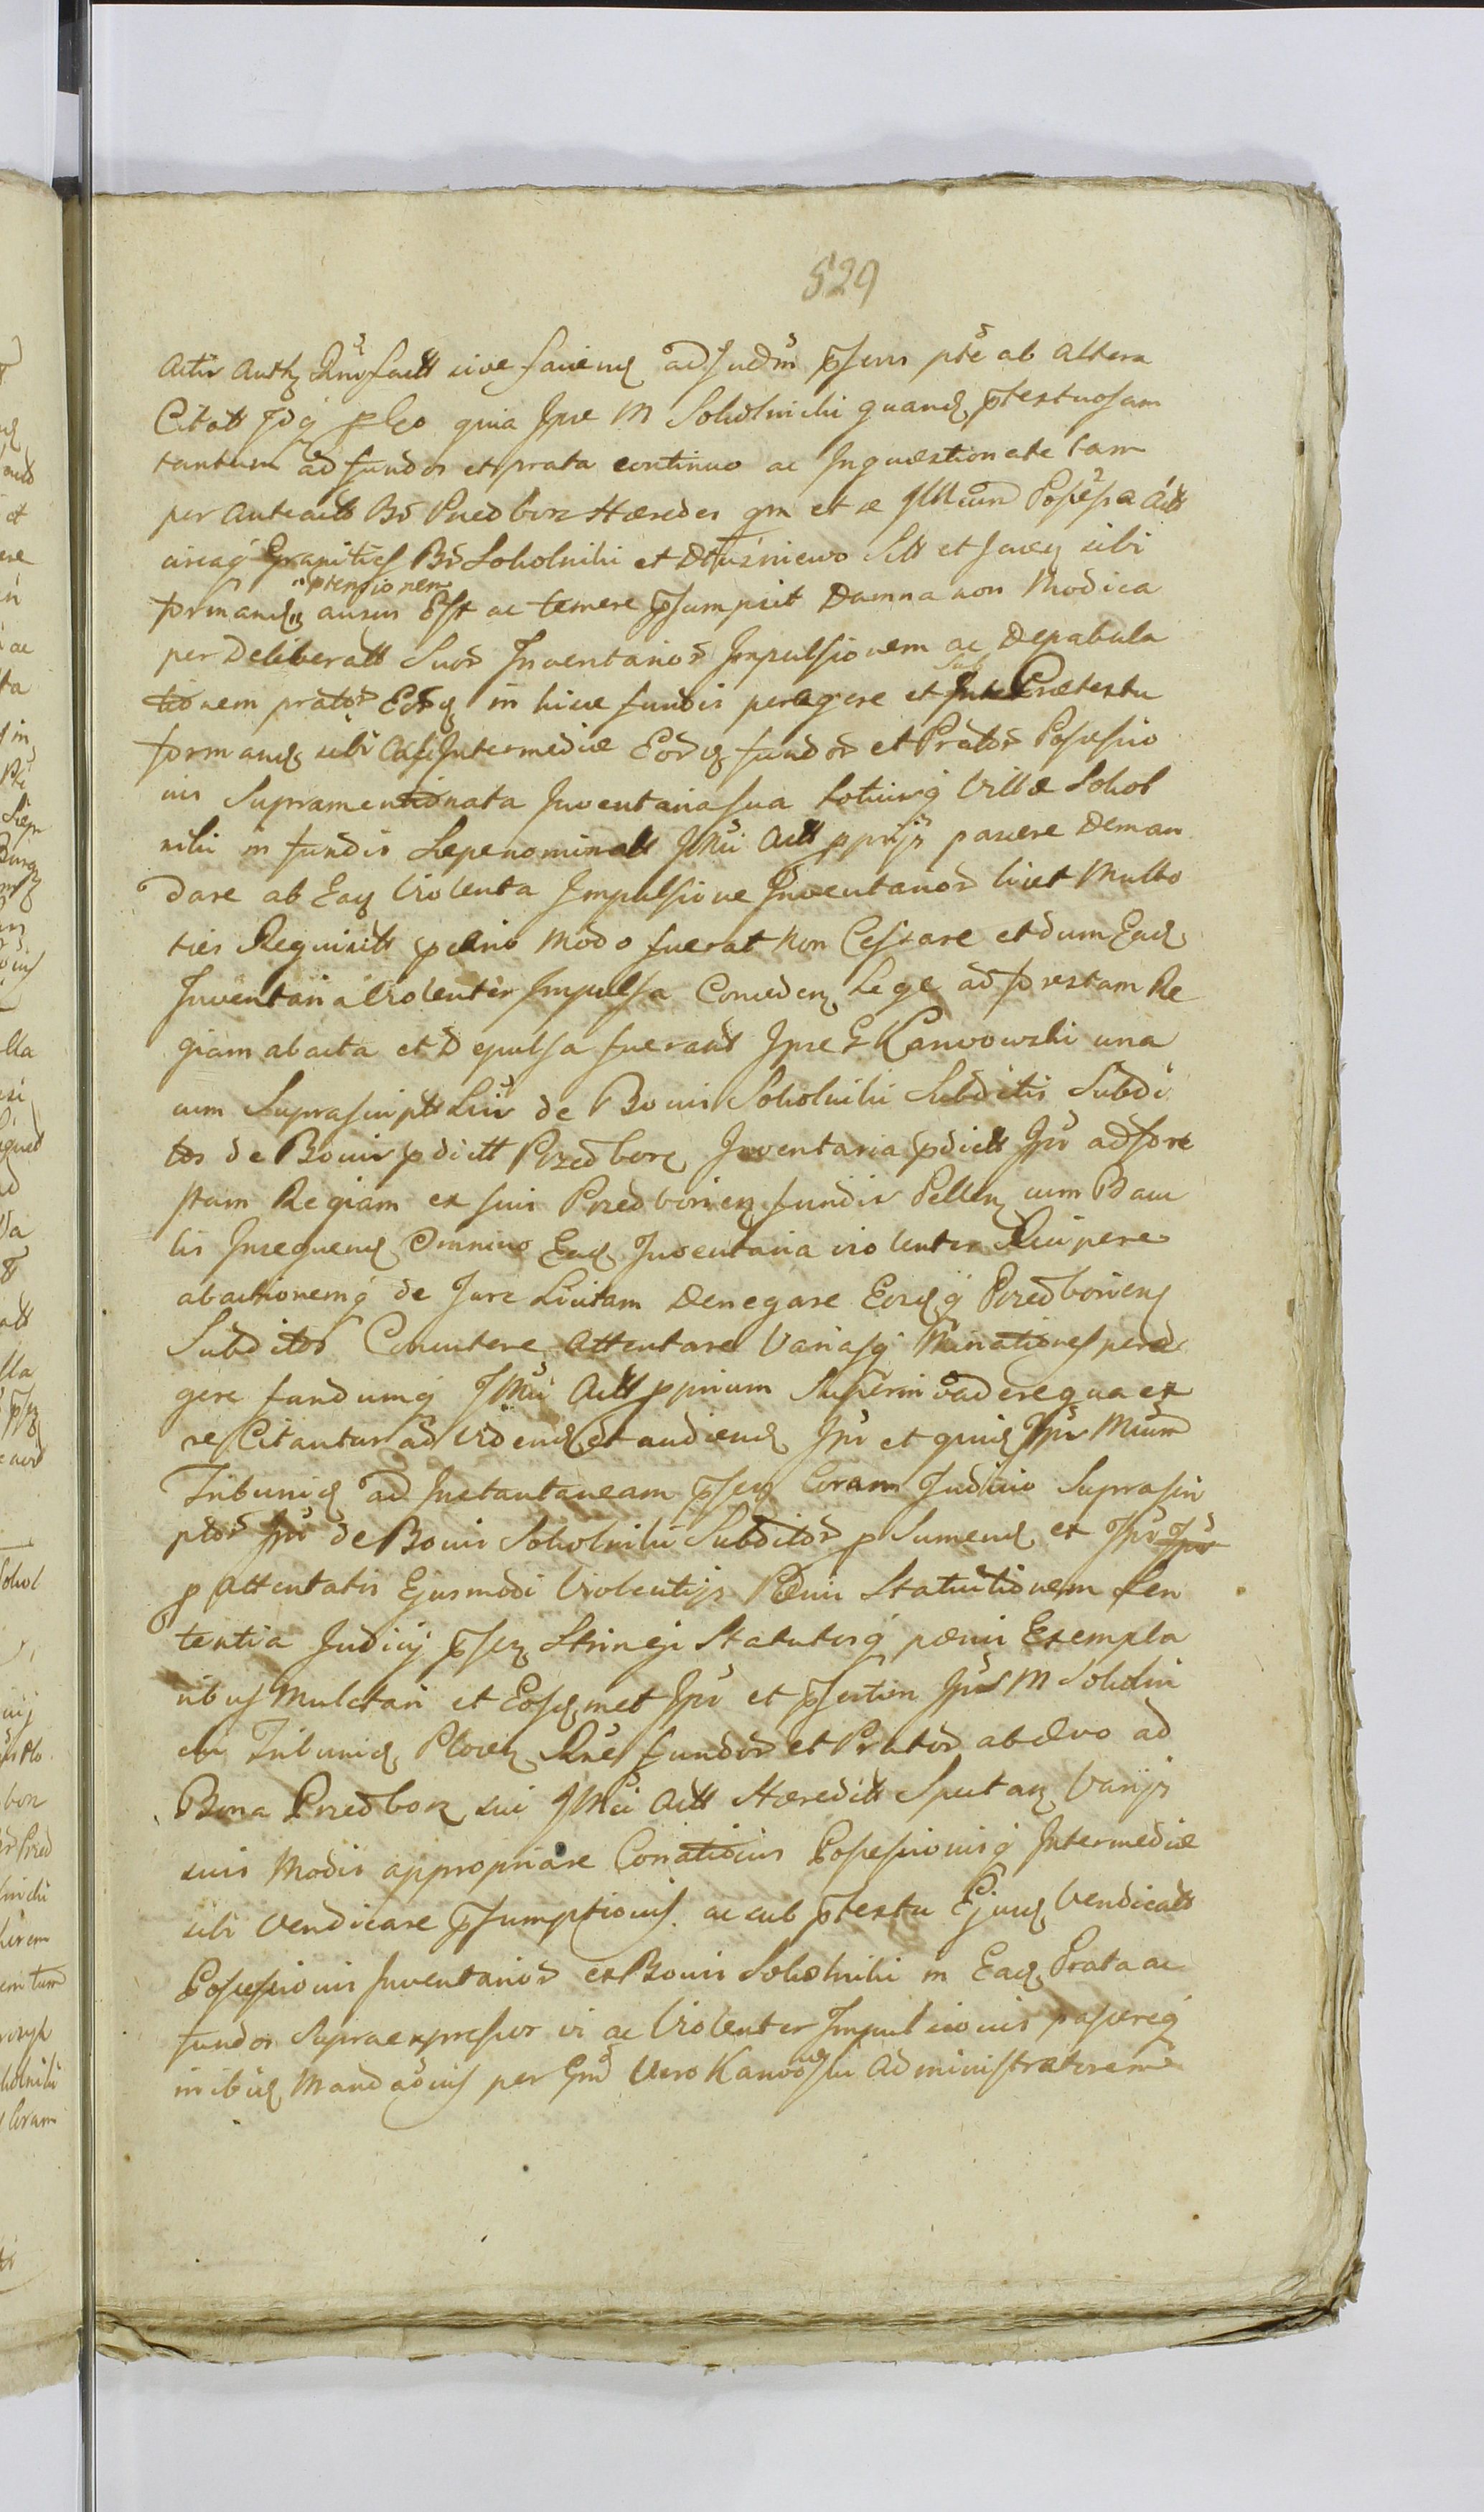 529
Actis Auth Rnŝ factt sive faciend ad Judm psens pte ab Altera
Citatt Idq pleo quia Ipse M Sokolnicki quand ptextuosam
tantum ad fundos et prata continuo ac Inquæstionate tam
per Anteactt Bŏ Przedborz Hæredes qm et a Possessa Actt
circaq Granities Bŏ Sokolniki et Dłużniewo Sitt et Jacen sibi
formand ptensionem ausus Est ac temere psumpsit Damna non Modica
per Deliberatt Suoŏ Inventarioŏ Impulsionem ac Depabula
tionem pratoŏ Eoŏq in hisce fundis peragere et Sub Prætextu
formand sibi Intermediæ Eoŏq fundoŏ et Pratoŏ Possessio
nis Supramentionata Inventaria sua totiusq Villæ Sokol
niki in fundis Sæpenominatt JMci Actt pprijs pascere Deman
dare ab Eaq Violenta Impulsione Inventarioŏ licet Multo
ties Requisitt pleno Modo fuerat Non Cessare et dum Ead
Inventaria Violenter Impulsa Conceden Lege ad forestam Re
giam abacta et Depulsa fuerant Ipse G Karwowski una
cum Suprascriptt de Bonis Sokolniki Subditis Subdi
tos de Bonis pdictt Przedborz Inventaria pdictt Ipŏ ad fore
stam Regiam ex suis Przedborien fundis Pellen cum Bacu
lis Insequend Omnino Ead Inventaria violenter Recipere
abactionemq de Jure Licitam Denegare Eosdq Przedborien
Subditos Concutere Attentare Variasq Minationes pera
gere fundumq JMci Actt pprium Superinvadere qua ex
re Citantur ad Vidend et audiend Ipŏ et quid Ipŏ Mcum
Tribunid ad Instantaneam psen Coram Judicio Suprascri
ptoŏ Ipŏ de Bonis Sokolniki Subditoŏ p Sumend et Ipŏ Ipŏ
p Attentatis Ejusmodi Violentijs Pœnis Statuitionem Sen
tentia Judicij psen Stringi Statutisq pœnis Exempla
ribus Mulctari et Eosdmet Ipŏ et psertim Ipŏ M Sokolni
cki Tribunid Plocen Rne fundoŏ et Pratoŏ ab ævo ad
Bona Przedborz sui JMci Actt Hæreditt Spectan Varijs
suis Modis appropriare Conationis Possessionisq Intermediæ
sibi Vendicare psumptionis ac sub ptextu Ejusd Vendicatt
Possessionis Inventarioŏ ex Bonis Sokolniki in Ead Prata ac
fundos Supraexpressos vi ac Violenter Impulsionis pascereq
in ibid Mandaonis per Gnŏ Vero Karwowski Administratorem